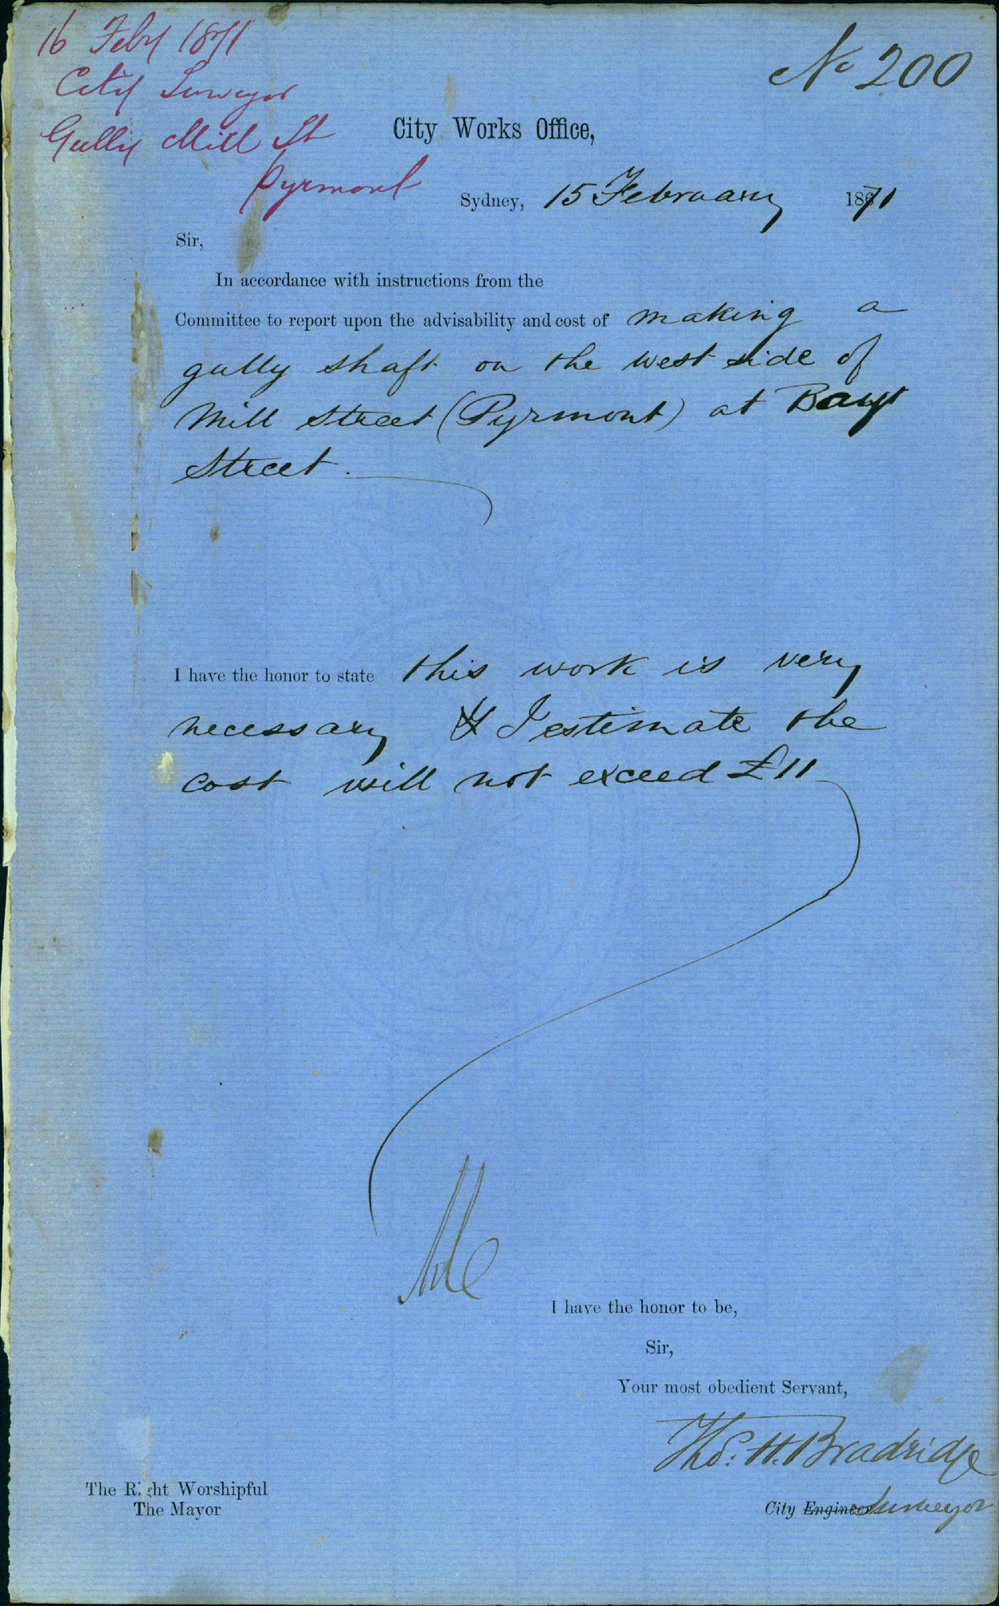 16 Feby 1871
City Surveyor
Gully Mill St
Pyrmont
No 200
City Works Office,
Sydney, 15 February 1871
Sir,
In accordance with instructions from the
Committee to report upon the advisability and cost of making a
gully shaft on the west side of
Mill Street (Pyrmont) at
Street.
I have the honor to state this work is very
necessary & I estimate the
cost will not exceed £11
I have the honor to be,
Sir,
Your most obedient Servant,
Thos. H. Bradridge
The Right Worshipful
The Mayor
City Engineer Surveyor